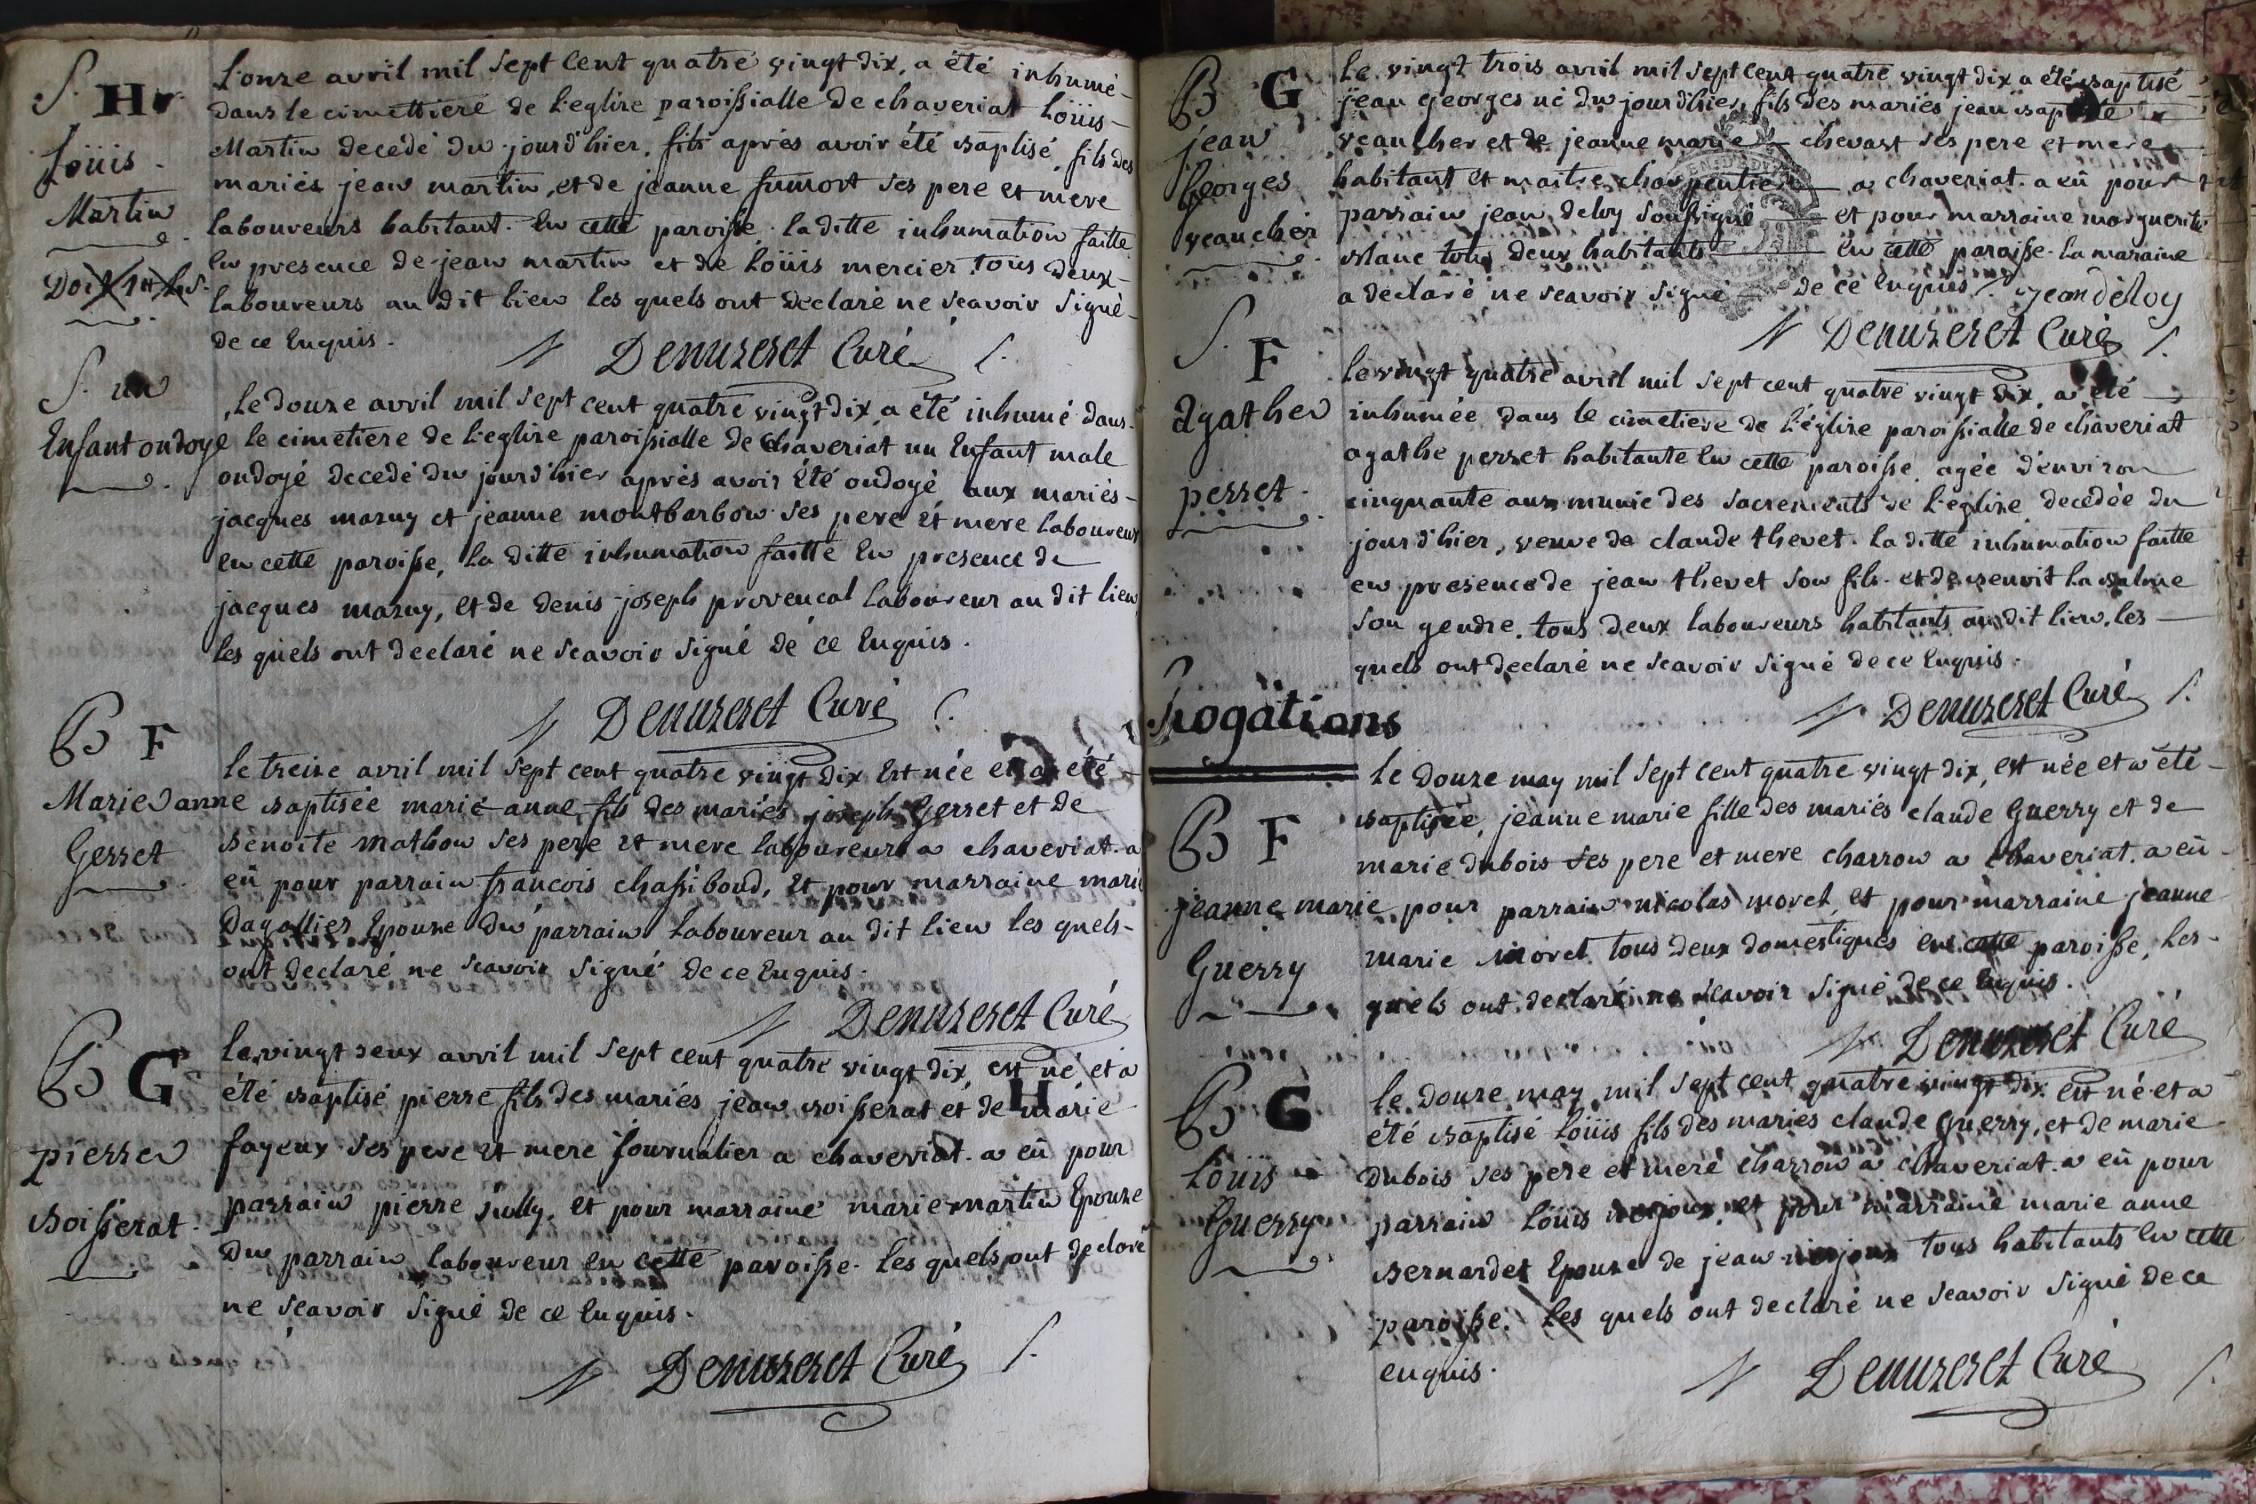 S. H
Loüis
Martin
Doit 1tt s.
L'onze avril mil sept cent quatre vingt dix, a été inhumé
dans le cimettiere de l'eglise paroissialle de chaveriat Loüis
Martin decedé du jourd'hier, fils aprés avoir été baptisé, fils des
mariés jean martin, et de jeanne sumort ses pere et mere
laboureurs habitant en cette paroisse. la ditte inhumation faitte
en presence de jean martin et de Loüis mercier tous deux
laboureurs au dit lieu les quels ont declaré ne scavoir signé
de ce Enquis.
Denuzeret Curé
S. un
Enfant ondoye
Le douze avril mil sept cent quatre vingt dix, a été inhumé dans
le cimetiere de l'eglise paroissialle de chaveriat un Enfant male
ondoyé decedé du jourd'hier aprés avoir été ondoyé aux mariés
jacques mazuy et jeanne montbarbon ses pere et mere laboureur
en cette paroisse, la ditte inhumation faitte en presence de
jacques mazuy, et de denis joseph provencal laboureur au dit lieu
les quels ont declaré ne scavoir signé de ce Enquis.
Denuzeret Curé
B F
Marie anne
Gerret
le treize avril mil sept cent quatre vingt dix Est née et a été
baptisée marie anne fils des mariés joseph Gerret et de
Benoite mathon ses pere et mere laboureurs a chaveriat. a
eü pour parrain francois chassiboud, et pour marraine marie
Dagallier Epouze du parrain laboureur au dit lieu les quels
ont declaré ne scavoir signé de ce Enquis.
Denuzeret Curé
B G
pierre
Boisserat
le vingt deux avril mil sept cent quatre vingt dix est né et a
été baptisé pierre fils des mariés jean Boisserat et de marie
H
fayeux ses pere et mere journalier a chaveriat. a eü pour
parrain pierre jully, et pour marraine marie martin Epouze
du parrain laboureur en cette paroisse. les quels ont declaré
ne scavoir signé de ce Enquis.
Denuzeret Curé
B G
jean
Georges
veaucher
le vingt trois avril mil sept cent quatre vingt dix a été baptisé
jean Georges né du jourd'hier, fils des mariés jean baptiste
veaucher et de jeanne marie chevast ses pere et mere
habitant et maitre charpentier a chaveriat. a eü pour
parrain jean deloy soussigné et pour marraine marguerite
blanc tous deux habitants en cette paroisse. la maraine
a declaré ne scavoir signé de ce Enquis. jean deloy
Denuzeret Curé
S. F
agathe
perret
le vingt quatre avril mil sept cent quatre vingt dix, a été
inhumée dans le cimetiere de l'église paroissialle de chaveriat
agathe perret habitante en cette paroisse agée d'environ
cinquante ans munie des sacrements de l'eglise decedée du
jour d'hier, veuve de claude thevet. la ditte inhumation faitte
en presence de jean thevet son fils et de benoit la balme
son gendre, tous deux laboureurs habitants au dit lieu, les
quels ont declaré ne scavoir signé de ce Enquis.
Denuzeret Curé
Rogations
B F
jeanne marie
Guerry
le douze may mil sept cent quatre vingt dix, est née et a été
baptisée, jeanne marie fille des mariés claude Guerry et de
marie dubois ses pere et mere charron a chaveriat. a eü
pour parrain nicolas morel, et pour marraine jeanne
marie morel tous deux domestiques en cette paroisse, les
quels ont declaré ne scavoir signé de ce Enquis.
Denuzeret Curé
B G
Loüis
Guerry
le douze may mil sept cent quatre vingt dix est né et a
été baptisé Loüis fils des mariés claude Guerry, et de marie
dubois ses pere et mere charron a chaveriat. a eü pour
parrain Loüis et pour marraine marie anne
Bernardet Epouze de jean tous habitants en cette
paroisse. les quels ont declaré ne scavoir signé de ce
enquis.
Denuzeret Curé